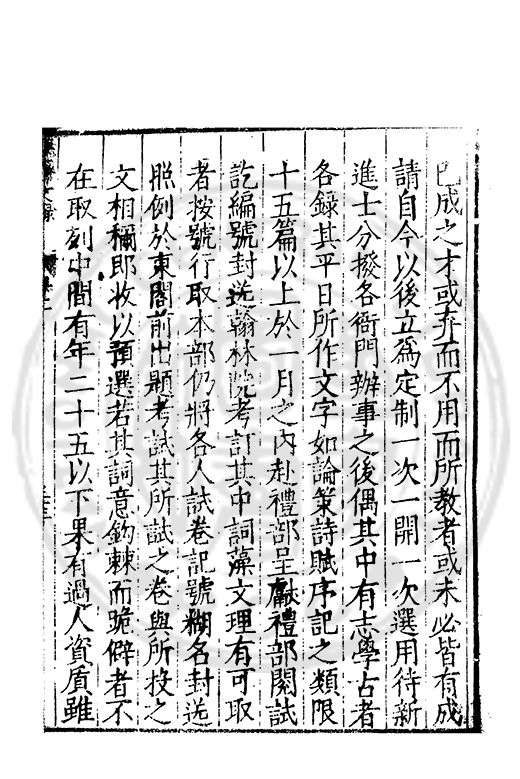 已成之才或弃而不用而所教者或未必皆有成
請自今以後立為定制一次一開一次選用待新
進士分撥各衙門辦事之後偶其中有志學古者
各録其平日所作文字如論策詩賦序記之類限
十五篇以上於一月之内赴禮部呈獻禮部閱試
訖編號封送翰林院考訂其中詞藻文理有可取
者按號行取本部仍將各人試卷記號糊名封送
照例於東閣前出題考試其所試之卷與所投之
文相稱即收以預選若其詞意鈎棘而詭僻者不
在取列中間有年二十五以下果有過人資質雖